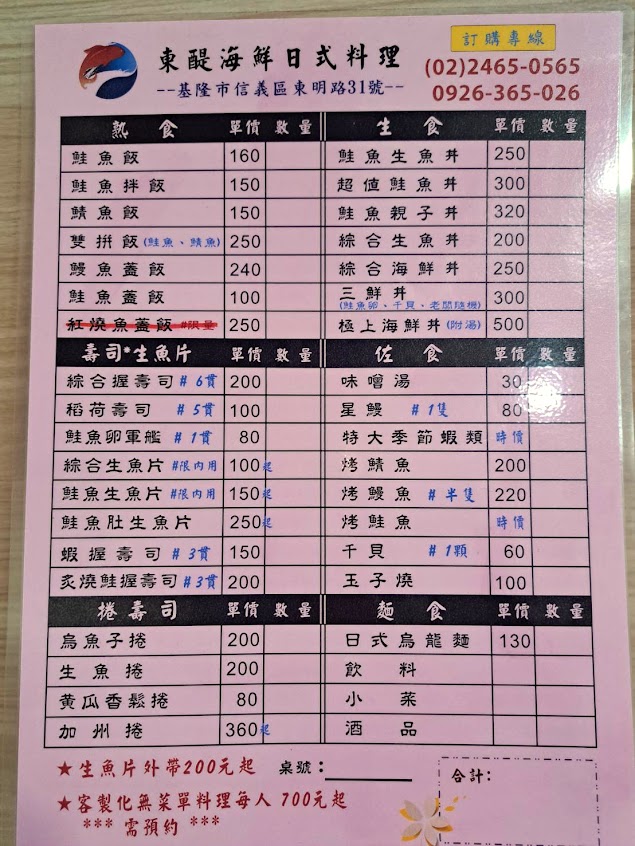 東醍海鮮日式料理
--基隆市信義區東明路31號--
訂購專線
(02)2465-0565
0926-365-026
熟食 單價 數量 生食 單價 數量
鮭魚飯 160 鮭魚生魚丼 250
鮭魚拌飯 150 超值鮭魚丼 300
鯖魚飯 150 鮭魚親子丼 320
雙拼飯(鮭魚、鯖魚) 250 綜合生魚丼 200
鰻魚蓋飯 240 綜合海鮮丼 250
鮭魚蓋飯 100 三鮮丼(鮭魚卵、干貝、老闆隨機) 300
紅燒魚蓋飯 #限量 250 極上海鮮丼(附湯) 500
壽司*生魚片 單價 數量 佐食 單價 數量
綜合握壽司 #6貫 200 味噌湯 30
稻荷壽司 #5貫 100 星鰻 #1隻 80
鮭魚卵軍艦 #1貫 80 特大季節蝦類 時價
綜合生魚片 #限內用 100起 烤鯖魚 200
鮭魚生魚片 #限內用 150起 烤鰻魚 #半隻 220
鮭魚肚生魚片 250起 烤鮭魚 時價
蝦握壽司 #3貫 150 干貝 #1顆 60
炙燒鮭握壽司 #3貫 200 玉子燒 100
捲壽司 單價 數量 麵食 單價 數量
烏魚子捲 200 日式烏龍麵 130
生魚捲 200 飲料
黃瓜香鬆捲 80 小菜
加州捲 360起 酒品
★生魚片外帶200元起 桌號：
合計:
★客製化無菜單料理每人 700元起
*** 需預約 ***